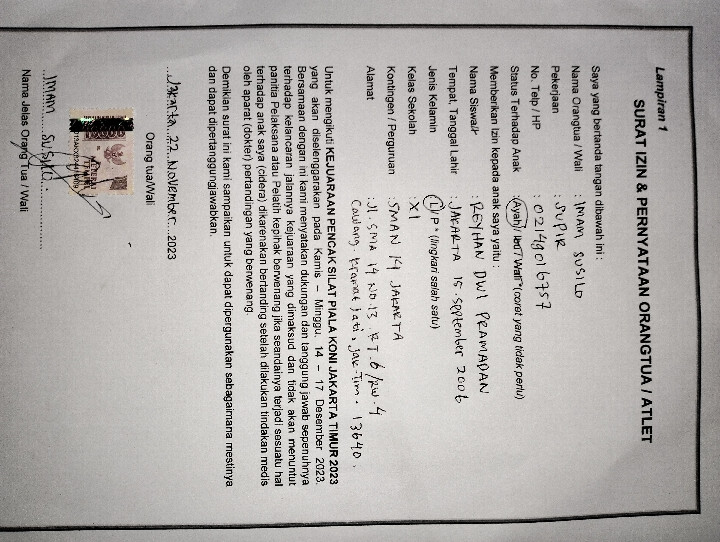 Lampiran 1
SURAT IZIN & PERNYATAAN ORANGTUA / ATLET
Saya yang bertanda tangan dibawah ini :
Nama Orangtua / Wali : IMAM SUSILO
Pekerjaan : SUPIR
No. Telp / HP : 02149016757
Status Terhadap Anak : (Ayah/ Ibu / Wali* (coret yang tidak perlu)
Memberikan Izin kepada anak saya yaitu :
Nama Siswa/i : REYHAN DWI PRAMADAN
Tempat, Tanggal Lahir : JAKARTA 15 . September 2006
Jenis Kelamin : L / P * (lingkari salah satu)
Kelas Sekolah : XI
Kontingen / Perguruan : SMAN 14 JAKARTA
Alamat : Jl. SMA 14 NO.13 . RT.6/RW.4
Cawang. Kramat Jati, Jak-Tim. 13640.
Untuk mengikuti KEJUARAAN PENCAK SILAT PIALA KONI JAKARTA TIMUR 2023
yang akan diselenggarakan pada Kamis – Minggu, 14 – 17 Desember 2023.
Bersamaan dengan ini kami menyatakan dukungan dan tanggung jawab sepenuhnya
terhadap kelancaran jalannya kejuaraan yang dimaksud dan tidak akan menuntut
panitia Pelaksana atau Pelatih kepihak berwenang jika seandainya terjadi sesuatu hal
terhadap anak saya (cidera) dikarenakan bertanding setelah dilakukan tindakan medis
oleh aparat (dokter) pertandingan yang berwenang.
Demikian surat ini kami sampaikan untuk dapat dipergunakan sebagaimana mestinya
dan dapat dipertanggungjawabkan.
Jakarta, 22 November 2023
Orang tua/Wali
METERAI
TEMPEL
IMAM SUSILO
Nama Jelas Orang Tua / Wali